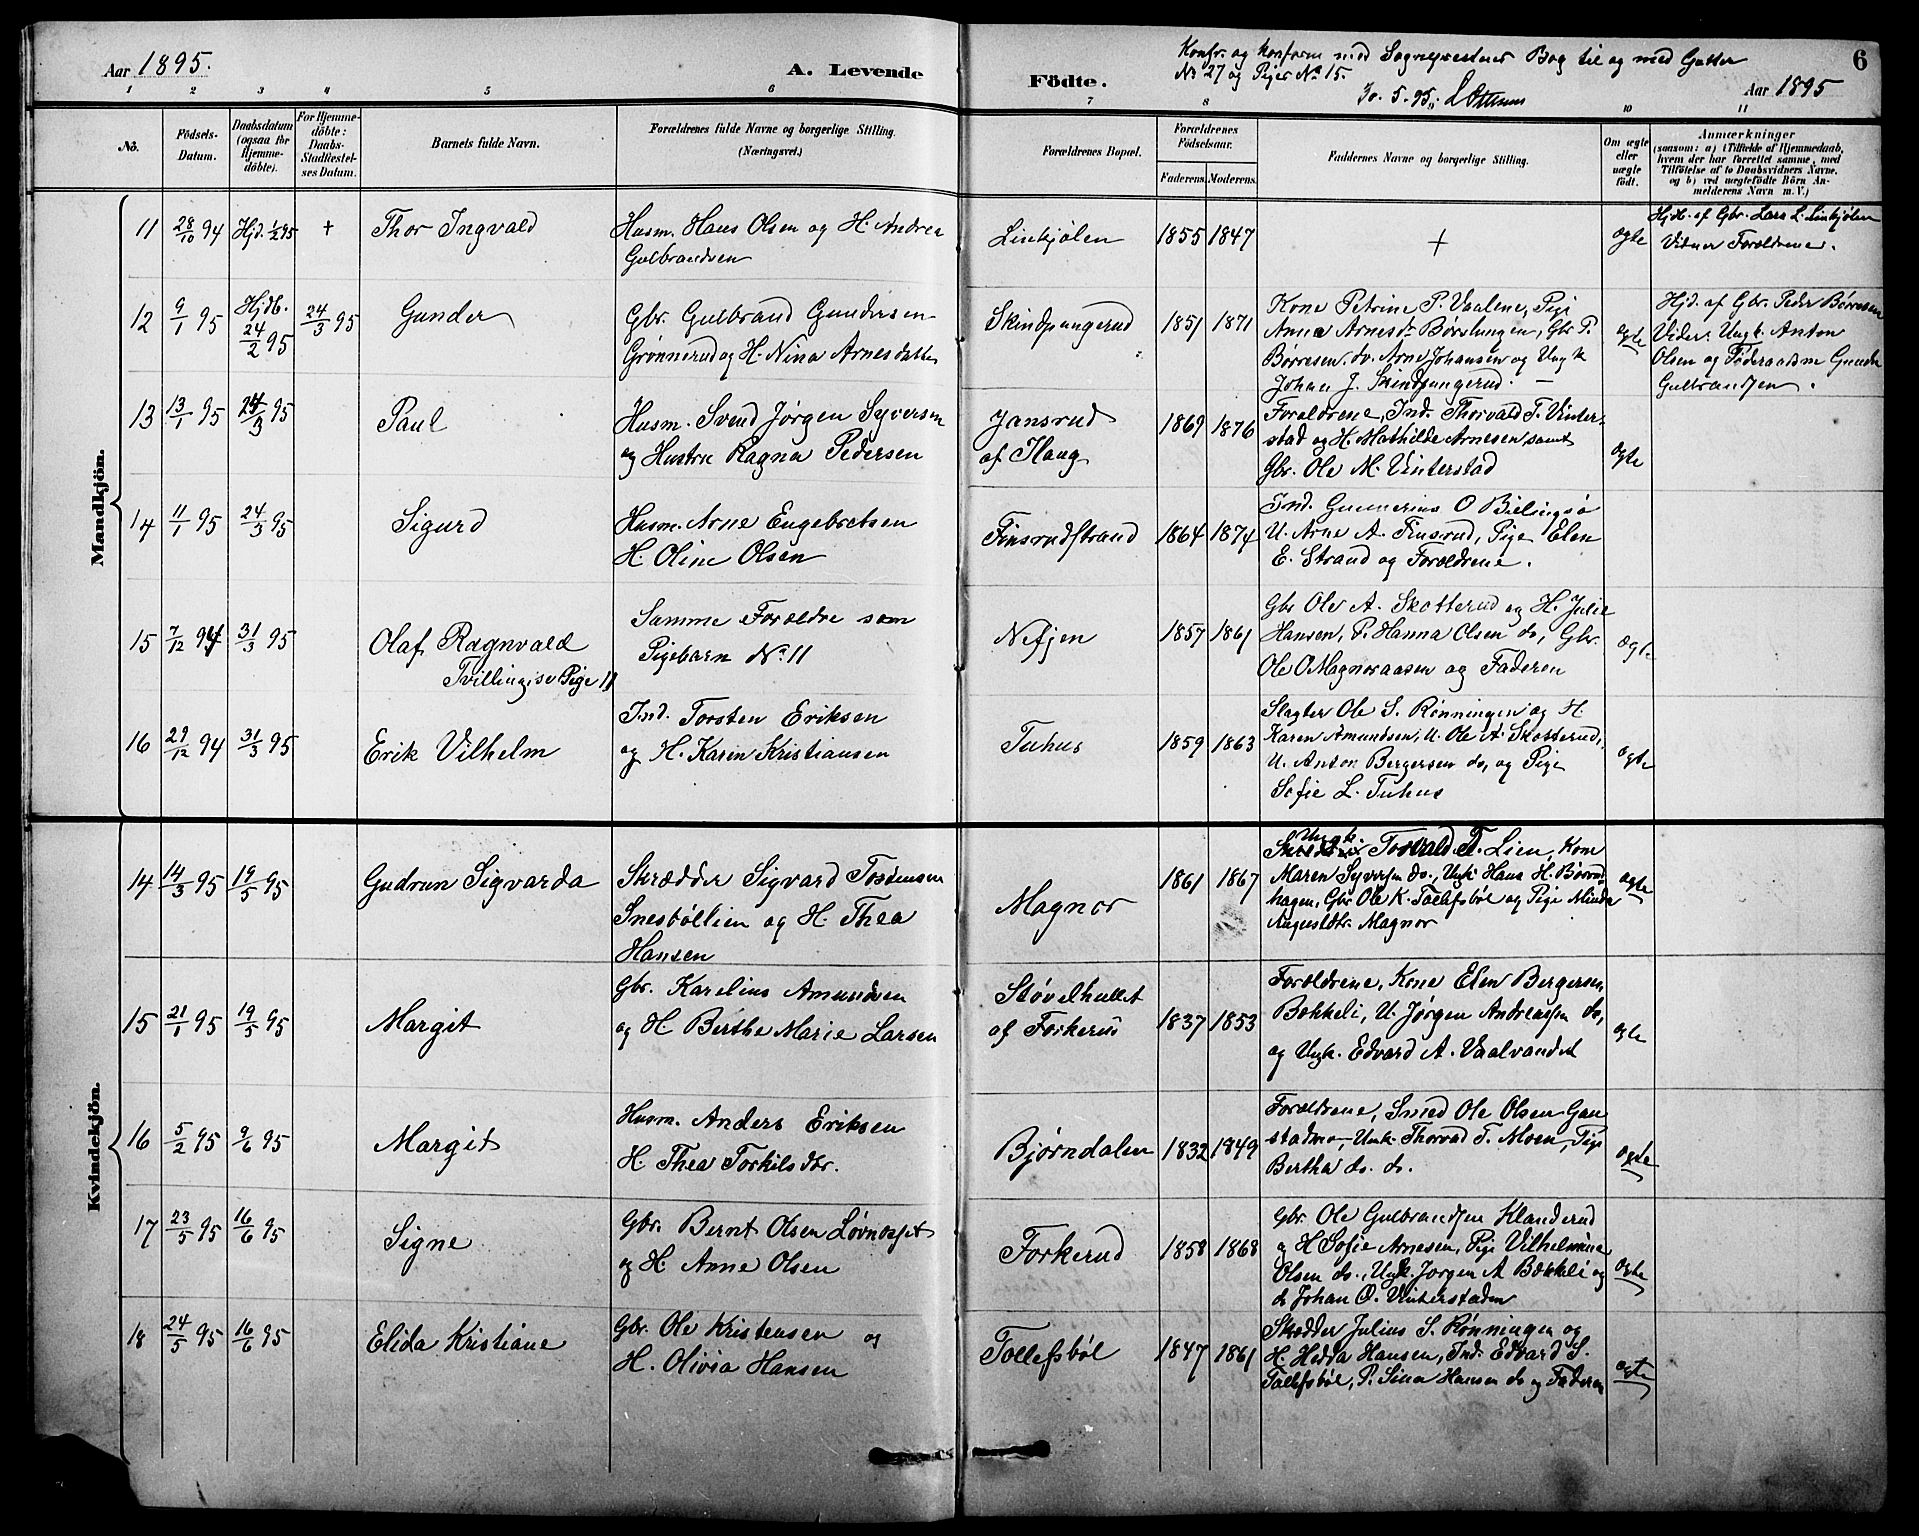 Aar 1895.
A. Levende
Födte.
Konfr. og konform med Sognepræstens Bog til og med Gutter
No 27 og Piger No 15.
6
Aar 1895
1 2 3 4 5 6 7 8 10 11
No.
Födsels-
Datum.
Daabsdatum
(ogsaa for
Hjemme-
döbte).
For Hjemme-
döbte:
Daabs-
Stadfæstel-
ses Datum.
Barnets fulde Navn.
Forældrenes fulde Navne og borgerlige Stilling.
(Næringsvei.)
Forældrenes Bopæl.
Forældrenes
Födselsaar.
Faderens. Moderens.
Faddernes Navne og borgerlige Stilling.
Om ægte
eller
uægte
födt.
Anmærkninger
(saasom: a) i Tilfælde af Hjemmedaab,
hvem der har forrettet samme, med
Tilföielse af to Daabsvidners Navne,
og b) ved uægtefödte Börn An-
melderens Navn m. V.)
Mandkjön.
11 28/10 94 Hjd. 1/2 95 + Thor Ingvald
Husm. Hans Olsen og H. Andrea
Gulbrandsen
Linkjølen 1855 1847 + ægte
Hjdb. af Gbr. Lars L. Linkjølen
Vidner Forældrene.
12 9/1 95 Hjdb. 24/2 95 24/3 95 Gunder
Gbr. Gulbrand Gundersen
Grønnerud og H. Nina Arnesdatter
Skindpungerud 1851 1871
Kone Petrine P. Vaalene, Pige
Anne Arnesdr Børslungen, Gbr P.
Børresen, do. Arne Johansen og Ungk
Johan J. Skindpungerud. —
ægte
Hjd. af Gbr. Peder Børresen
Vidner: Ungk. Anton
Olsen og Føderaadsm Gunder
Gulbrandsen.
13 13/1 95 24/3 95 Paul
Husm. Svend Jørgen Syversen
og Hustru Ragna Pedersen
Jansrud
af Haug
1869 1876
Forældrene, Ind. Thorvald T. Vinter-
stad og H. Mathilde Arnesen samt
Gbr. Ole M. Vinterstad
ægte
14 11/1 95 24/3 95 Sigurd
Husm. Arne Engebretsen
H. Oline Olsen
Finsrudstrand 1864 1874
Ind. Gunnerius O Bielingsø
U. Arne A. Finsrud, Pige Elen
E. Strand og Forældrene.
15 7/12 94 31/3 95 Olaf Ragnvald
Tvilling se Pige 11
Samme Forældre som
Pigebarn No. 11
Nesjen 1857 1861
Gbr Ole A. Skotterud og H. Julie
Hansen, P. Hanna Olsen do, Gbr.
Ole O Magnoraasen og Faderen
ægte
16 29/12 94 31/3 95 Erik Vilhelm
Ind. Torsten Eriksen
og H. Karen Kristiansen
Tuhus 1859 1863
Slagter Ole S. Rønningen og H
Karen Amundsen, U. Ole A. Skotterud,
U. Anton Bergersen do, og Pige
Sofie L. Tuhus
ægte
Kvindekjön.
14 14/3 95 19/5 95 Gudrun Sigvarda
Skrædder Sigvard Tostensen
Snesbøllien og H. Thea
Hansen
Magnor 1861 1867
Ungk. Torvald T. Lien, Kone
Maren Syversen do., Ungk. Hans H. Børrud
hagen, Gbr. Ole K. Tollefsbøl og Pige Minda
Augustdtr. Magnor
ægte
15 21/1 95 19/5 95 Margit
Gbr. Karelius Amundsen
og H Berthe Marie Larsen
Støvelhullet
af Forkerud
1837 1853
Forældrene, Kone Elen Bergersen
Bækkeli, U. Jørgen Andreassen do,
og Ungk. Edvard A. Vaalvandet
ægte
16 5/2 95 9/6 95 Margit
Husm. Anders Eriksen
H. Thea Torkilsdtr.
Bjørndalen 1832 1849
Forældrene, Smed Ole Olsen Gau
stadmo, Ungk. Thorvad T. Moen, Pige
Bertha do. do.
ægte
17 23/5 95 16/6 95 Signe
Gbr. Bernt Olsen Løvnæset
og H. Anne Olsen
Forkerud 1858 1868
Gbr. Ole Gulbrandsen Klanderud
og H Sofie Arnesen, Pige Vilhelmine
Olsen do., Ungk. Jørgen A Bækkeli og
do Johan O. Vinterstaden
ægte
18 24/5 95 16/6 95 Elida Kristiane
Gbr. Ole Kristensen og
H. Olivia Hansen
Tollefsbøl 1847 1861
Skrædder Julius S. Rønningen og
H. Hedda Hansen, Ind. Edvard S.
Tollefsbøl, P. Sina Hansen do og Faderen
ægte